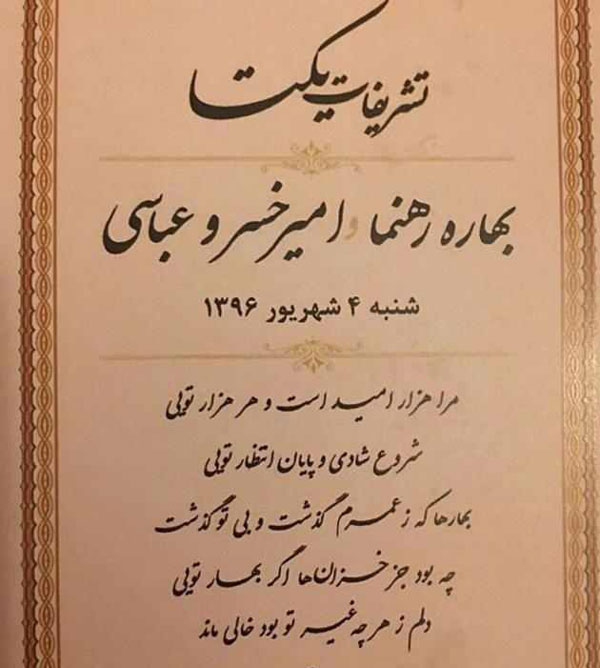 تشریفات یکتا
بهاره رهنما و امیرخسرو عباسی
شنبه ۴ شهریور ۱۳۹۶
مرا هزار امید است و هر هزار تویی
شروع شادی و پایان انتظار تویی
بهارها که ز عمرم گذشت و بی تو گذشت
چه بود جز خزان‌ها اگر بهار تویی
دلم ز هر چه غیر تو بود خالی ماند